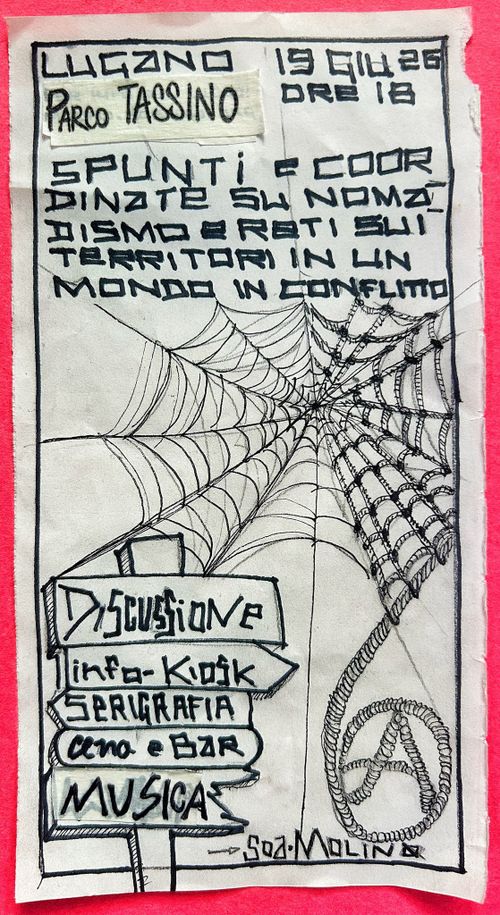 LUGANO 19 GIU 26
PARCO TASSINO ORE 18
SPUNTI E COOR
DINATE SU NOMA-
DISMO E RETI SUI
TERRITORI IN UN
MONDO IN CONFLITTO
DISCUSSIONE
info-KIOSK
SERIGRAFIA
cena e BAR
MUSICA
A
→ SOA·MOLINO